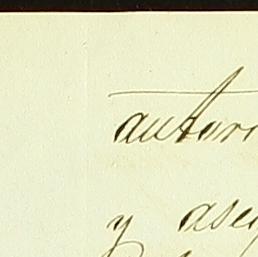 autori
y aseg